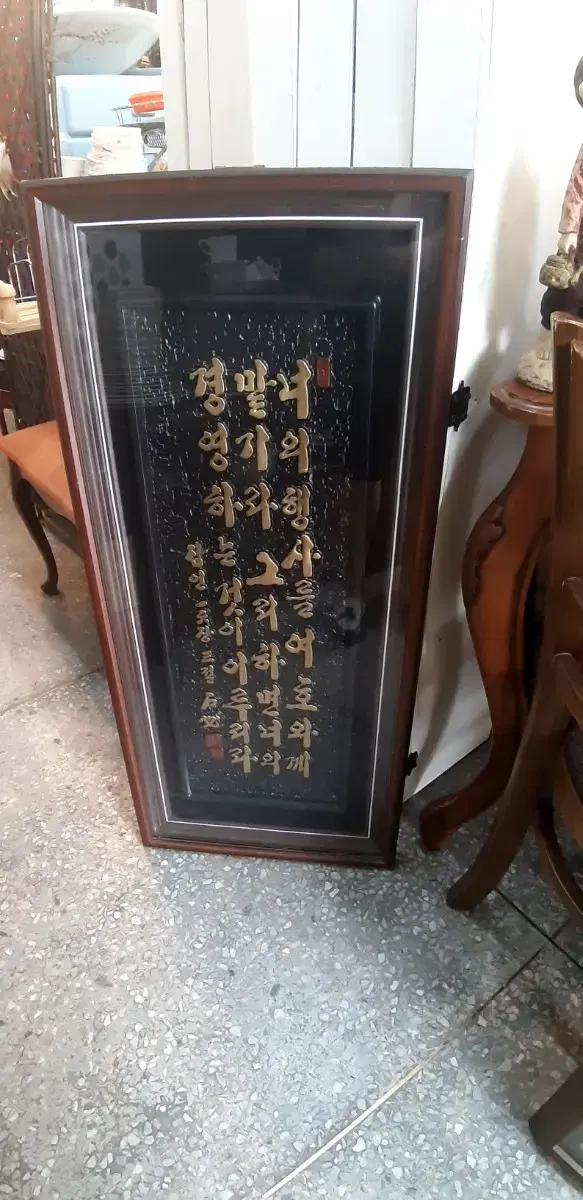 너의 행사를 여호와께
맡기라 그리하면 너의
경영하는 것이 이루리라
잠언 一六장 三절